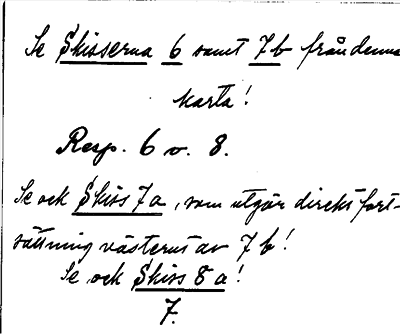 Se Skisserna 6 samt 7b från denna
karta!
Resp. 6 v. 8.
Se ock Skiss 7a, som utgör direkt fort-
sättning västerut av 7b!
Se ock Skiss 8a!
7.